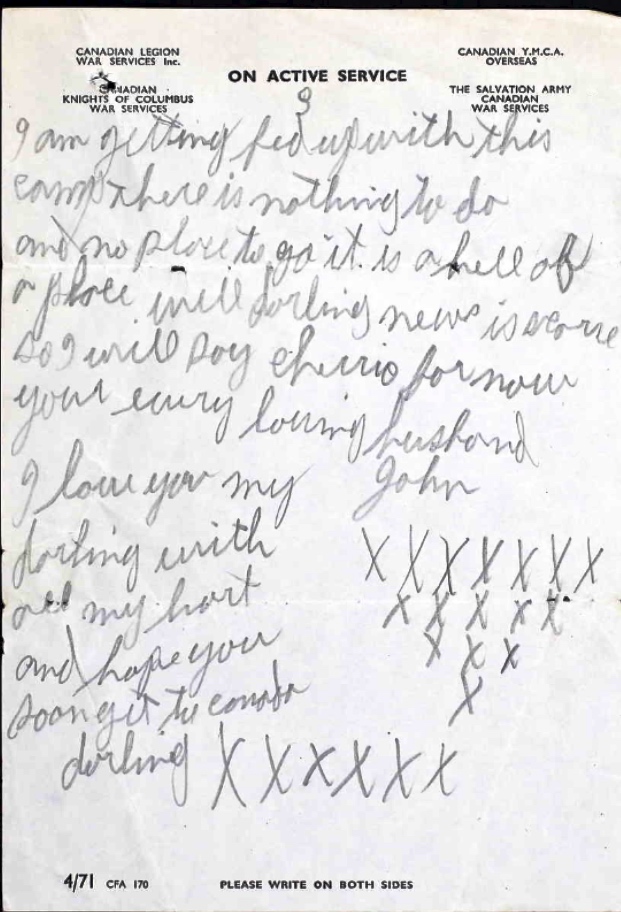 CANADIAN LEGION
WAR SERVICES Inc.
CANADIAN
KNIGHTS OF COLUMBUS
WAR SERVICES
ON ACTIVE SERVICE
CANADIAN Y.M.C.A.
OVERSEAS
THE SALVATION ARMY
CANADIAN
WAR SERVICES
9
I am getting fed up with this
camp there is nothing to do
and no place to go it is a hell of
a place will darling news is scarse
so I will say cherrio for now
your every loving husband
John
I love you my
darling with
all my hart
and hope you
soon git to canada
darling X X X X X X
X X X X X X X
X X X X X
X X X
X
4/71 CFA 170 PLEASE WRITE ON BOTH SIDES